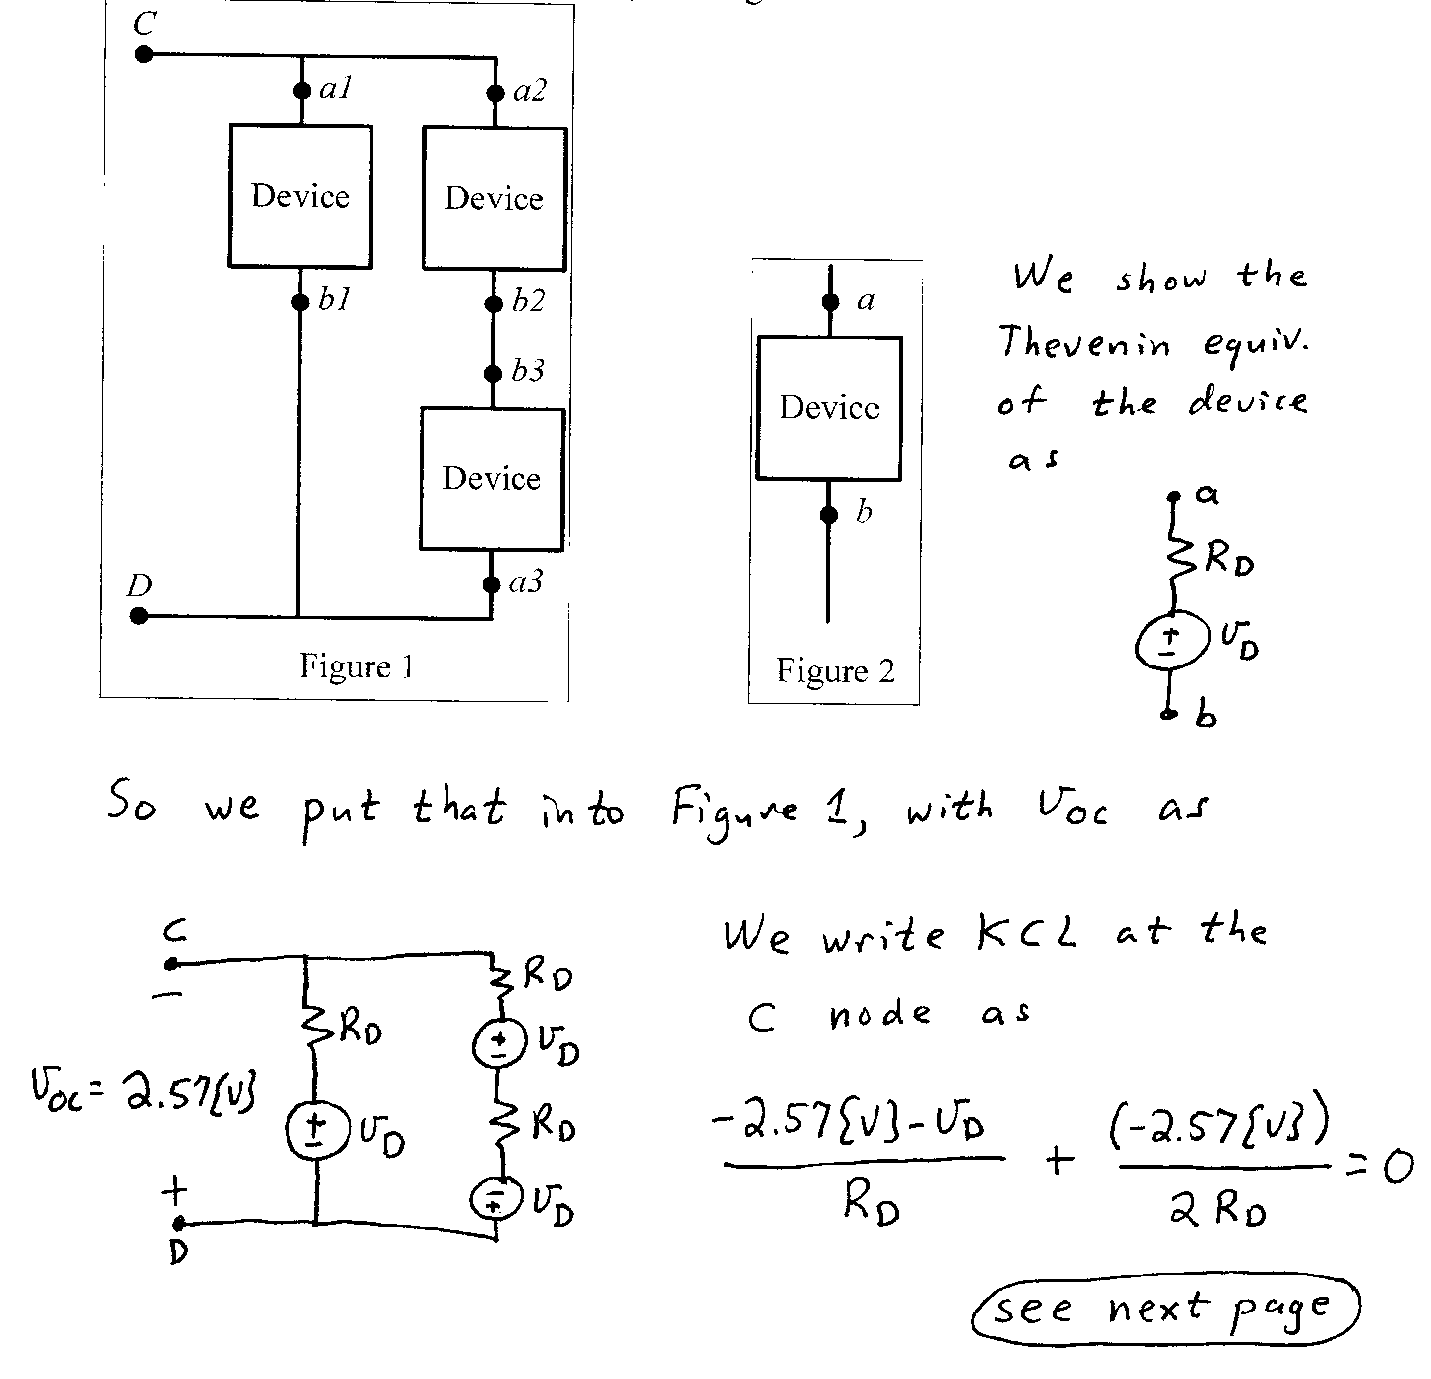 C
a1
a2
Device
Device
b1
b2
b3
Device
D
a3
Figure 1
a
Device
b
Figure 2
We show the
Thevenin equiv.
of the device
as
a
R_D
+
-
v_D
b
So we put that into Figure 1, with v_OC as
C
-
R_D
R_D
+
-
v_D
v_OC = 2.57{V}
+
-
v_D
R_D
-
+
v_D
+
D
We write KCL at the
C node as
-2.57{V} - v_D / R_D + (-2.57{V}) / 2 R_D = 0
see next page